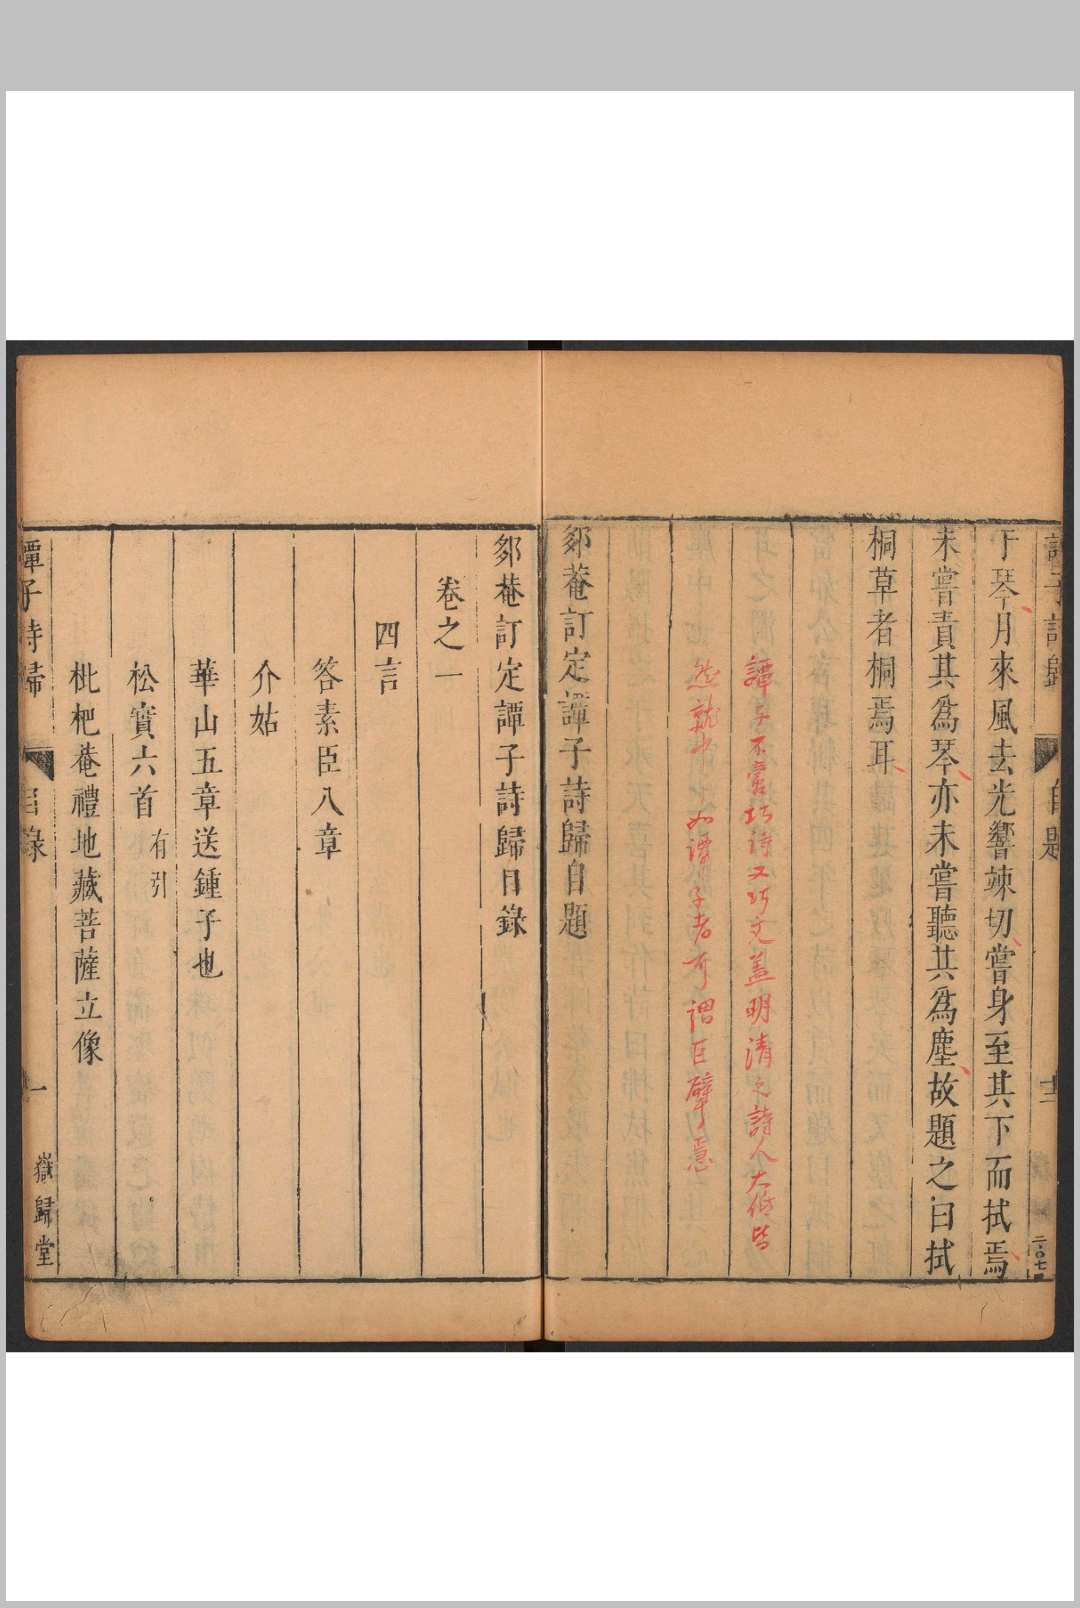 譚子詩歸
自題
十二
二〇七
于琴月來風去光響竦切嘗身至其下而拭焉
未嘗責其為琴亦未嘗聽其為塵故題之曰拭
桐草者桐焉耳
譚子不嘗巧詩又巧文蓋明清之詩人大低皆
然就中如譚子者可謂巨擘焉
邲菴訂定譚子詩歸自題
邲菴訂定譚子詩歸目錄
卷之一
四言
答素臣八章
介姑
華山五章送鍾子也
松寶六首有引
枇杷菴禮地藏菩薩立像
譚子詩歸
目錄
一
嶽歸堂